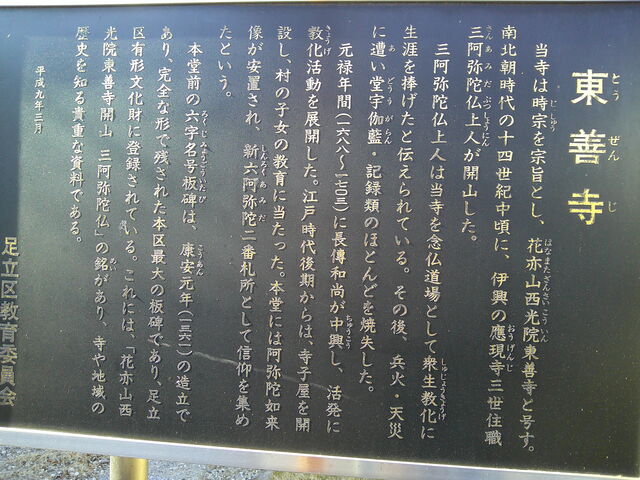 東善寺
とう ぜん じ
当寺は時宗を宗旨とし、花亦山西光院東善寺と号す。
南北朝時代の十四世紀中頃に、伊興の應現寺三世住職
三阿弥陀仏上人が開山した。
三阿弥陀仏上人は当寺を念仏道場として衆生教化に
生涯を捧げたと伝えられている。その後、兵火・天災
に遭い堂宇伽藍・記録類のほとんどを焼失した。
元禄年間(一六八八〜一七〇三)に長傳和尚が中興し、活発に
教化活動を展開した。江戸時代後期からは、寺子屋を開
設し、村の子女の教育に当たった。本堂には阿弥陀如来
像が安置され、新六阿弥陀二番札所として信仰を集め
たという。
本堂前の六字名号板碑は、康安元年(一三六一)の造立で
あり、完全な形で残された本区最大の板碑であり、足立
区有形文化財に登録されている。これには、「花亦山西
光院東善寺開山 三阿弥陀仏」の銘があり、寺や地域の
歴史を知る貴重な資料である。
平成九年三月
足立区教育委員会